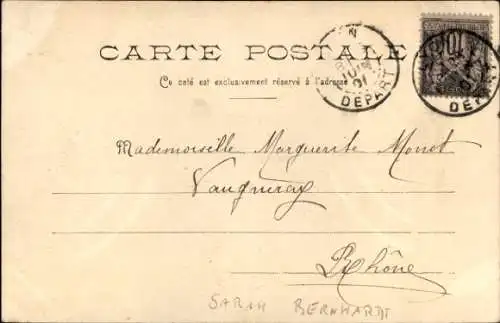 CARTE POSTALE
Ce côté est exclusivement réservé à l'adresse
N
JUIN
01
DEPART
Mademoiselle Marguerite Monet
Vaugneray
Rhône
SARAH BERNHARDT